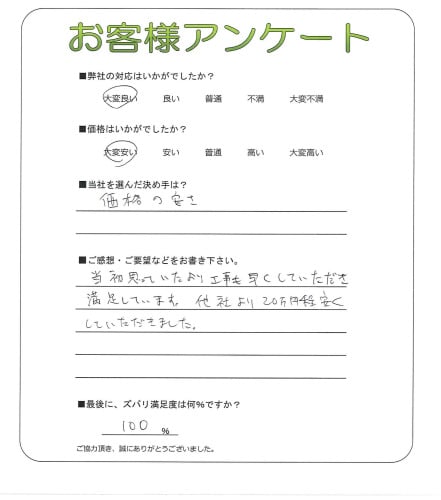 お客様アンケート
■弊社の対応はいかがでしたか?
大変良い 良い 普通 不満 大変不満
■価格はいかがでしたか?
大変安い 安い 普通 高い 大変高い
■当社を選んだ決め手は?
価格の安さ
■ご感想・ご要望などをお書き下さい。
当初思っていたより工事も早くしていただき
満足しています。他社より20万円程安く
していただきました。
■最後に、ズバリ満足度は何%ですか?
100 %
ご協力頂き、誠にありがとうございました。